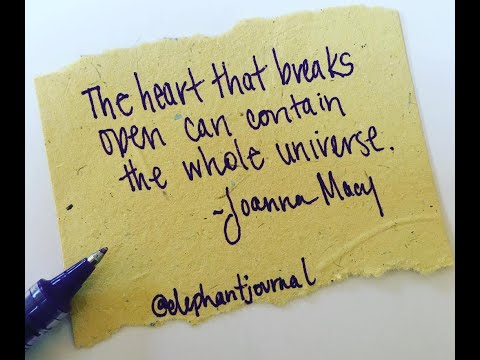 The heart that breaks
open can contain
the whole universe.
~Joanna Macy
@elephantjournal